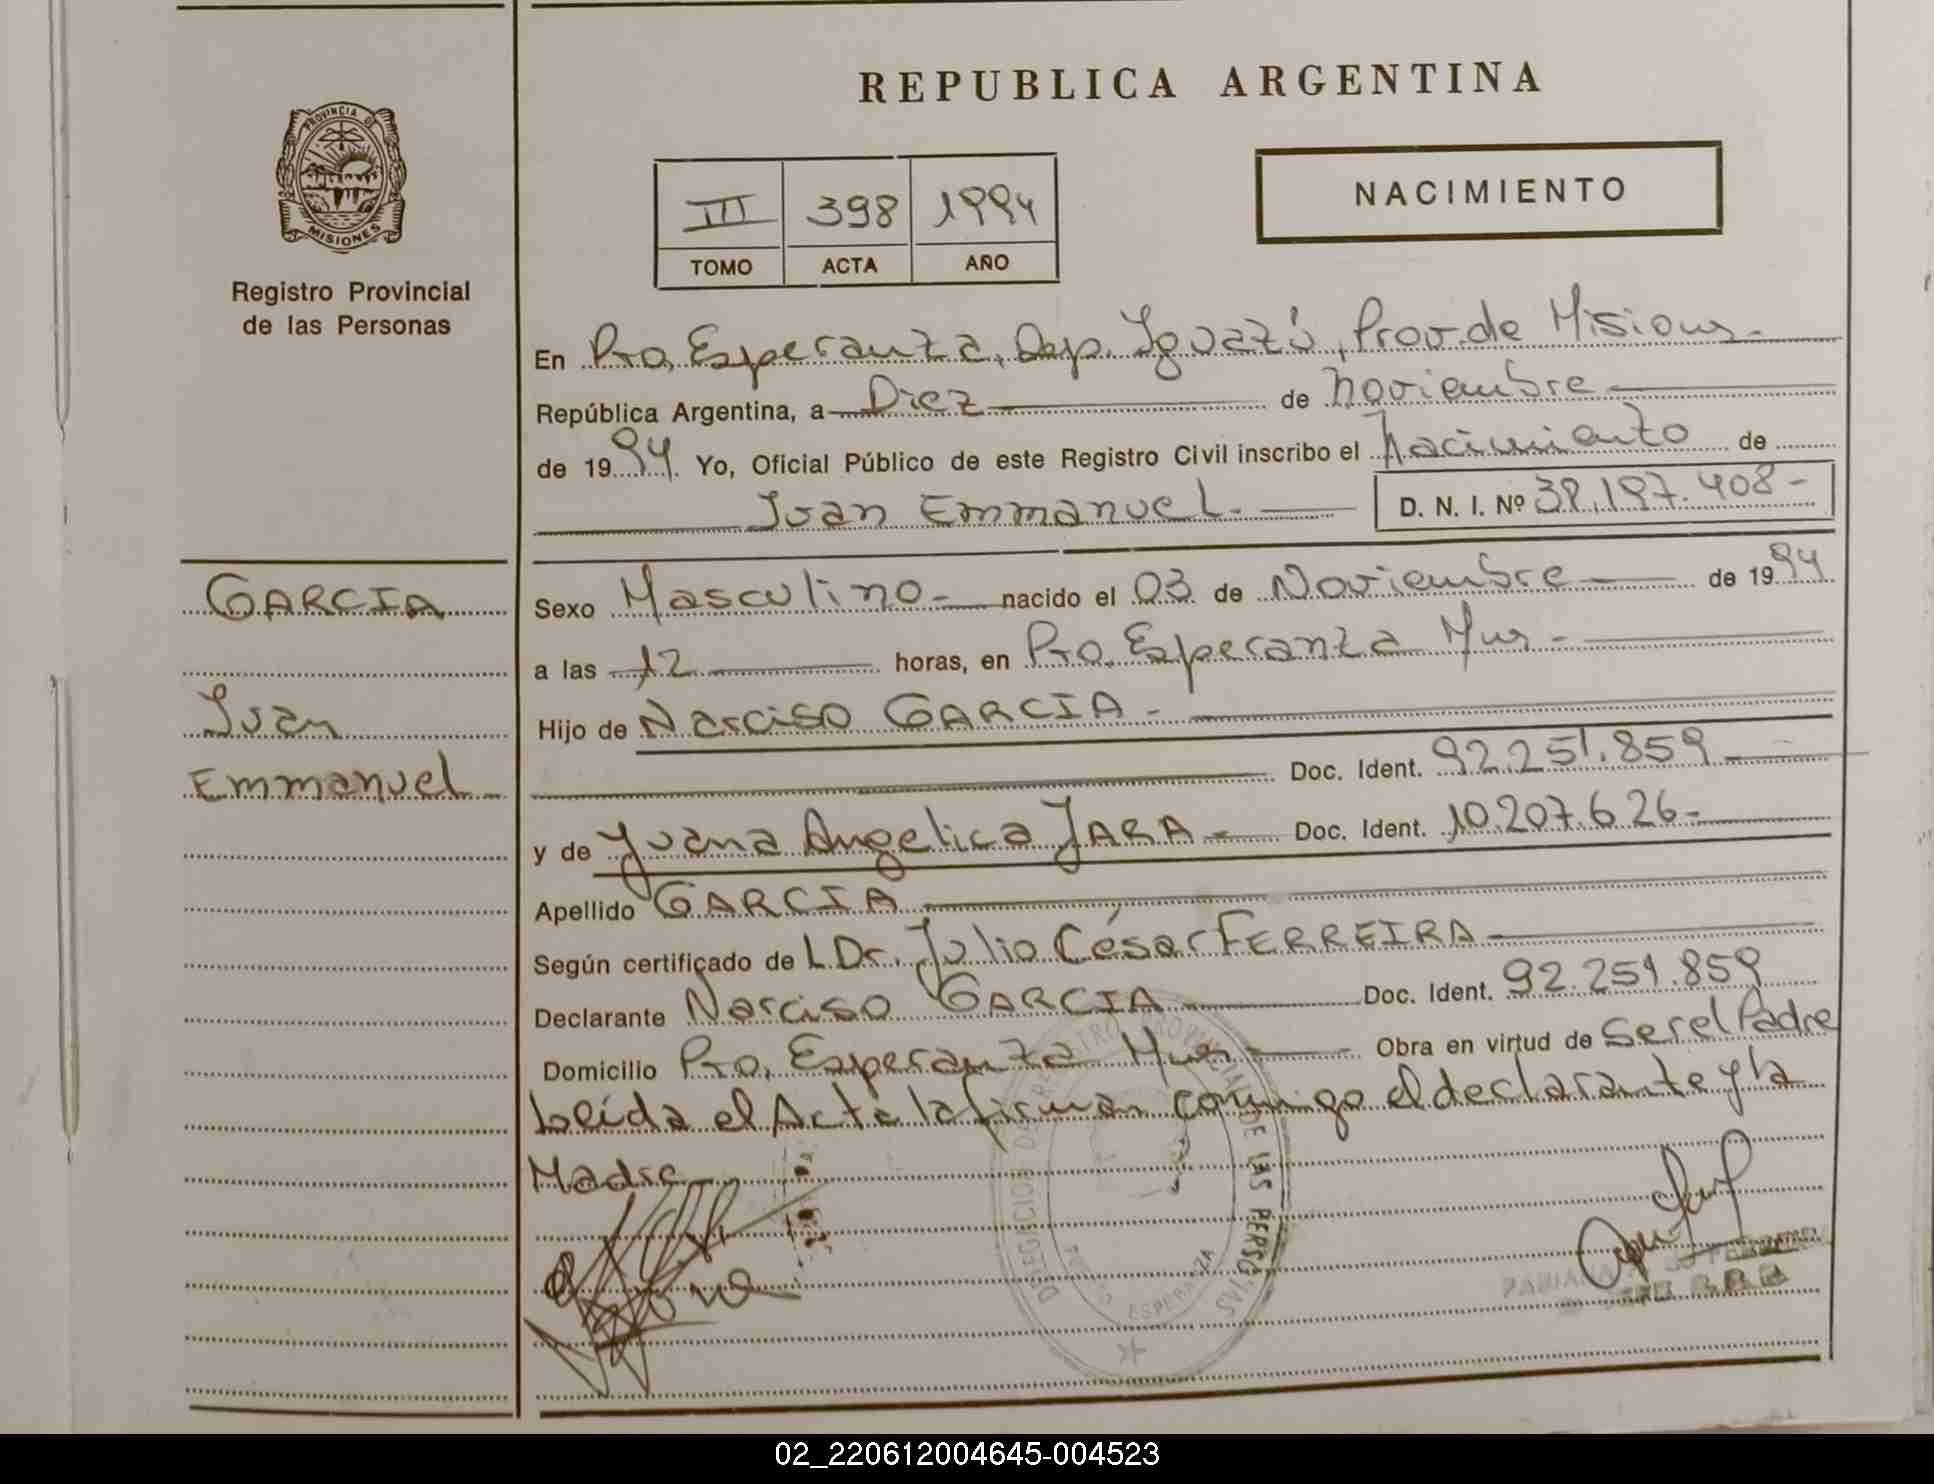 REPUBLICA ARGENTINA
PROVINCIA DE
MISIONES
Registro Provincial
de las Personas
III 398 1994
TOMO ACTA AÑO
NACIMIENTO
En Pto. Esperanza, Dep. Iguazú, Prov. de Misiones.
República Argentina, a Diez de Noviembre
de 1994. Yo, Oficial Público de este Registro Civil inscribo el Nacimiento de
Juan Emmanuel. D. N. I. Nº 38.197.408-
GARCIA
Juan
Emmanuel
Sexo Masculino- nacido el 03 de Noviembre de 1994
a las 12 horas, en Pto. Esperanza Mnes-
Hijo de Narciso GARCIA-
Doc. Ident. 92.251.859
y de Juana Angelica JARA- Doc. Ident. 10.207.626-
Apellido GARCIA
Según certificado de L Dr. Julio César FERREIRA
Declarante Narciso GARCIA Doc. Ident. 92.251.859
Domicilio Pto. Esperanza Mnes- Obra en virtud de ser el Padre
Leída el Acta la firman conmigo el declarante y la
Madre
DELEGACION DEL REGISTRO PROVINCIAL DE LAS PERSONAS
PUERTO ESPERANZA
02_220612004645-004523